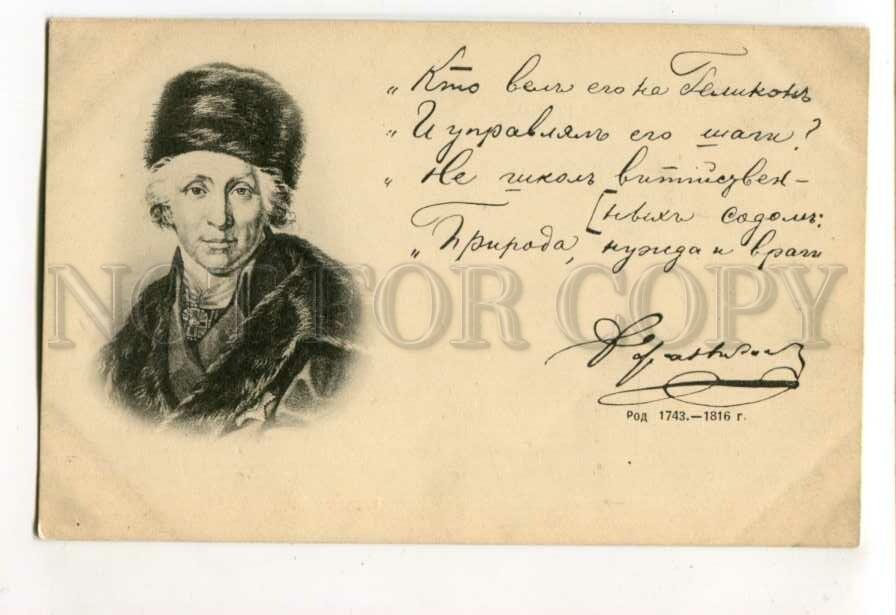 „Кто велъ его на Геликонъ
„И управлялъ его шаги?
„Не школъ витійствен-
[ныхъ содомъ:
„Природа, нужда и враги
Державинъ
Род 1743.—1816 г.
NOT FOR COPY